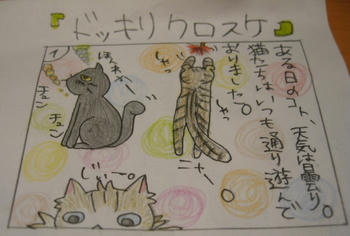 『ドッキリクロスケ』
1
ある日のコト、天気は曇り。
猫たちはいつも通り遊んで
おりました。
ほんわか〜
チュン
チュン
しゃっ
しゃっ
ニャー
じーっ。